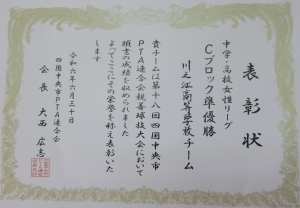 表彰状
中学・高校女性リーグ
Cブロック準優勝
川之江高等学校チーム
貴チームは第十八回四国中央市
PTA連合会親善球技大会において
頭書の成績を収められました
よってここにその栄誉を称え表彰いた
します
令和六年六月三十日
四国中央市PTA連合会
会長 大西広志